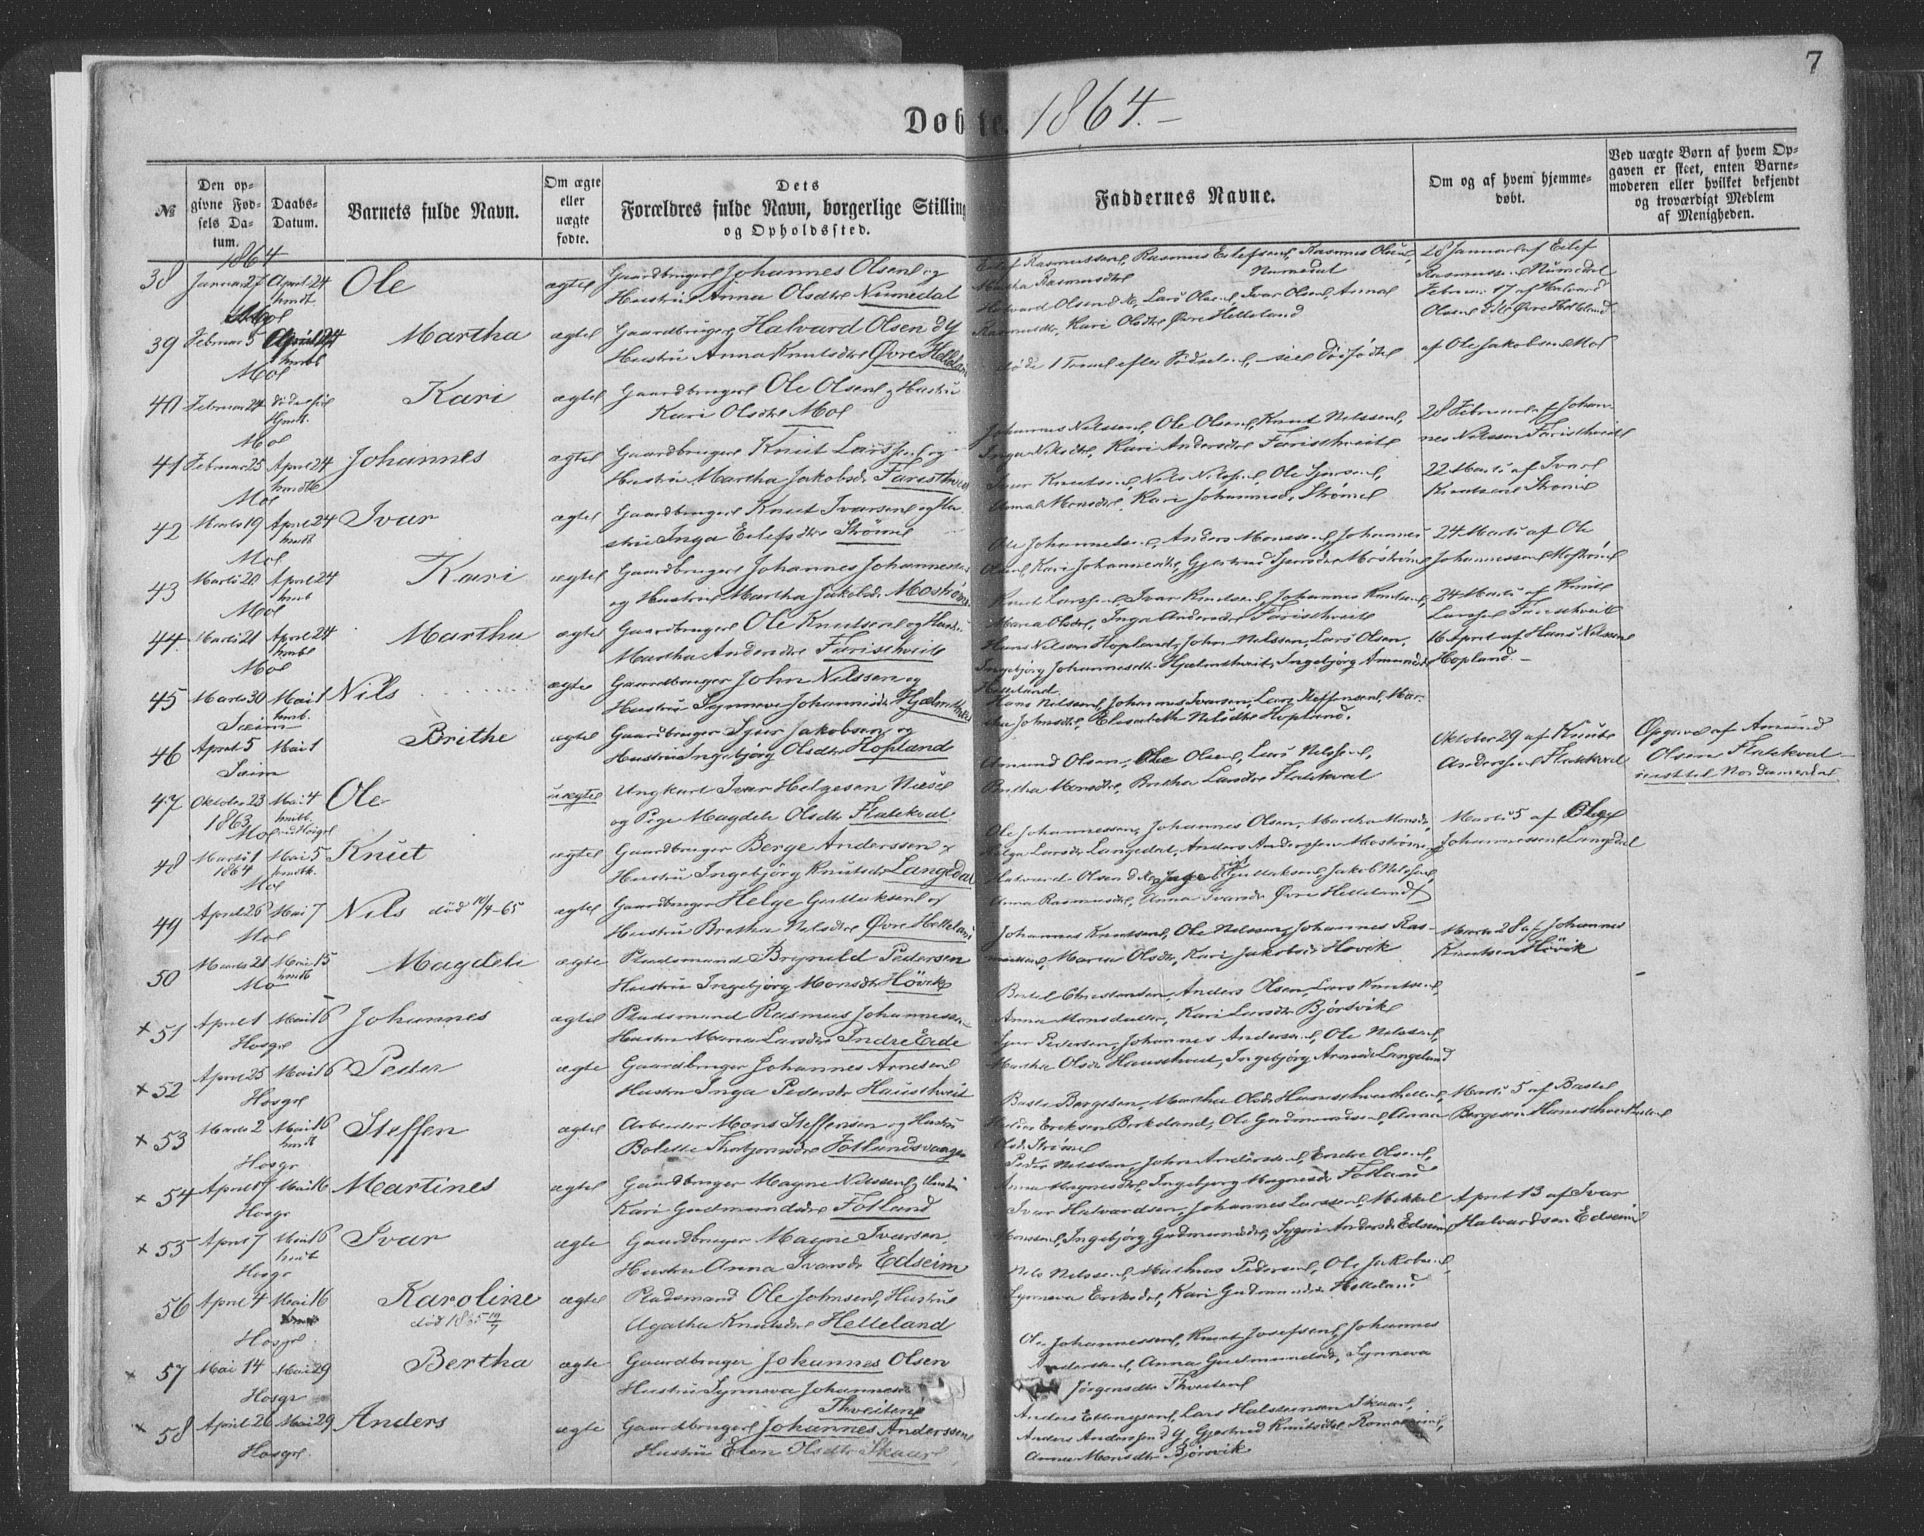 7
Døbte. 1864.-
№
Den opgivne Fødsels Datum.
Daabs-Datum.
Barnets fulde Navn.
Om ægte eller uægte fødte.
Dets Forældres fulde Navn, borgerlige Stilling og Opholdssted.
Faddernes Navne.
Om og af hvem hjemmedøbt.
Ved uægte Børn af hvem Opgaven er skeet, enten Barnemoderen eller hvilket bekjendt og troværdigt Medlem af Menigheden.
1864
38 Januar 27 April 24 Ole ægte Gaardbruger Johannes Olsen og
Hustru Anna Olsdtr Numedal
Rasmussen, Rasmus Eilefsen, Rasmus Olsen,
Martha Rasmusdtr Numedal
28 Januar af Eilef
Rasmussen Numedal
39 Februar 5 April 24 Martha ægte Gaardbruger Halvard Olsen d y
Hustru Anna Knutsdtr Øvre Helleland
Halvard Olsen d æ, Lars Olsen, Ivar Olsen, Anna
Rasmusdtr, Kari Olsdtr Øvre Helleland
Februar 17 af Halvard
Olsen d æ Øvre Helleland
Mol
40 Februar 24 Kari ægte Gaardbruger Ole Olsen og Hustru
Kari Olsdtr Mol
døde 1 Time efter Fødselen
af Ole Jakobsen Mol
Mol
41 Februar 25 April 24 Johannes ægte Gaardbruger Knut Larssen og
Hustru Martha Jakobsdtr Faristhveit
Johannes Nilssen, Ole Olsen, Knut Nilssen,
Inga Nilsdtr, Kari Andersdtr Faristhveit
28 Februar af Johannes Nilssen Faristhveit
Mol
42 Marts 19 April 24 Ivar ægte Gaardbruger Knut Ivarsen og Hustru Inga Eilefsdtr Strømme
Ivar Knutsen, Nils Nilssen, Ole Sjursen,
Anna Monsdtr, Kari Johannesd. Strømme
22 Marts af Ivar
Knutsen Strømme
Mol
43 Marts 20 April 24 Kari ægte Gaardbruger Johannes Johannessen
og Hustru Martha Jakobsdr. Mostrøm
Ole Johannessen, Anders Monssen, Johannes
Olsen, Kari Johannesdtr, Gjertrud Sjursdtr Mostrøm
24 Marts af Ole
Johannessen Mostrøm
Mol
44. Marts 21 April 24 Martha ægte Gaardbruger Ole Knutsen og Hustru
Martha Andersdtr Faristhveit
Knut Larssen, Ivar Knutsen, Johannes Knutsen,
Maria Olsdtr, Inga Andersdtr Faristhveit
24 Marts af Knut
Larssen Faristhveit
Mol
45 Marts 30 Mai 1 Nils ægte Gaardbruger John Nilssen og
Hustru Synneve Johannesdtr Hjelmthveit
Hans Nilssen Hopland, John Nilssen, Lars Olsen,
Ingebjørg Johannesdtr Hjelmthveit, Ingebjørg Amundsdtr
Helleland
16 April af Hans Nilssen
Hopland.-
Seim
46 April 5 Mai 1 Brithe ægte Gaardbruger Sjur Jakobsen og
Hustru Ingebjørg Olsdtr Hopland
Hans Nilssen, Johannes Ivarsen, Lars Steffensen, Martha Johnsdtr, Elisabeth Nilsdtr Hopland.
Seim
47 Oktober 23 Mai 4 Ole uægte Ungkarl Ivar Helgesen Næse
og Pige Magdele Olsdtr Flatekval
1863
Amund Olsen, Ole Olsen, Lars Nilssen,
Britha Monsdtr, Britha Larsdtr Flatekval
Oktober 29 af Knut
Anderssen Flatekval
Opgave af Amund
Olsen Flatekval
48 Marts 1 Mai 5 Knut ægte Gaardbruger Berge Anderssen og
Hustru Ingebjørg Knutsdtr Langedal
1864
Mol
Ole Johannessen, Johannes Olsen, Martha Monsdtr,
Helga Larsdtr Langedal, Anders Anderssen Mostrøm
Marts 5 af Ole
Johannessen Langedal
49 April 26 Mai 7 Nils død 10/4-65 ægte Gaardbruger Helge Gullaksen og
Hustru Britha Nilsdtr Øvre Helleland
Mol
Halvard Olsen d æ, Gullaksen, Jakob Nilssen,
Anna Rasmusdtr, Anna Ivarsdtr Øvre Helleland
50 Marts 21 Mai 15 Magdeli ægte Pladsmand Brynild Pedersen
Hustru Ingebjørg Monsdtr Høvik
Mo
Johannes Knutsen, Ole Nilssen, Johannes Rasmussen, Maria Olsdtr, Kari Jakobsdtr Høvik
Marts 28 af Johannes
Knutsen Høvik
× 51 April 1 Mai 16 Johannes ægte Pladsmand Rasmus Johannessen
Hustru Maria Larsdtr Indre Eide
Hosgr
Bertel Christensen, Anders Olsen, Lars Knutsen,
Anna Monsdatter, Kari Larsdtr Bjørsvik
× 52 April 25 Mai 16 Peder ægte Gaardbruger Johannes Arnesen
Hustru Inga Pedersdtr Hausthveit
Hosgr
Sjur Pedersen, Johannes Anderssen, Ole Nilssen,
Martha Olsdtr Hausthveit, Ingebjørg Arnesdtr Langeland
× 53 Marts 2 Mai 16 Steffen ægte Arbeider Mons Steffensen og Hustru
Bolette Thorbjørnsdtr Fotlandsvaagen
Hosgr
Marts 5 af Bastel
Bergesen
× 54 April 17 Mai 16 Martines ægte Gaardbruger Magne Nilssen, Hustru
Kari Gudmundsdtr Fotland
Hosgr
Peder Nilssen, John Anderssen, Endre Olsen,
Anna Magnesdtr, Ingebjørg Magnesdtr Fotland
× 55 April 7 Mai 16 Ivar ægte Gaardbruger Magne Ivarsen,
Hustru Anna Ivarsdtr Edseim
Hosgr
Ivar Halvardsen, Johannes Larssen, Mikkel
Monssen, Ingebjørg Gudmundsdtr, Sygni Andersdtr Edseim
April 13 af Ivar
Halvardsen Edseim
56 April 4 Mai 16 Karoline ægte Pladsmand Ole Johnsen, Hustru
død 1865
Agatha Knutsdtr Helleland
Hosgr
Nils Nilssen, Mathias Pedersen, Ole Jakobsen,
Synneva Eriksdtr, Kari Gudmundsdtr Helleland
× 57 Mai 14 Mai 29 Bertha ægte Gaardbruger Johannes Olsen
Hustru Synneva Johannesdtr
Thveiten
Hosgr
Ole Johannessen, Knut Josefsen, Johannes
Anderssen, Anna Gudmundsdtr, Synneva
Jørgensdtr Thveiten
× 58 April 26 Mai 29 Anders ægte Gaardbruger Johannes Anderssen
Hustru Elen Olsdtr Skaar
Hosgr
Anders Ellingsen, Lars Halsteinsen Skaar,
Anders Anderssen d y, Gjertrud Knutsdtr Romarheim,
Anna Monsdtr Bjørsvik